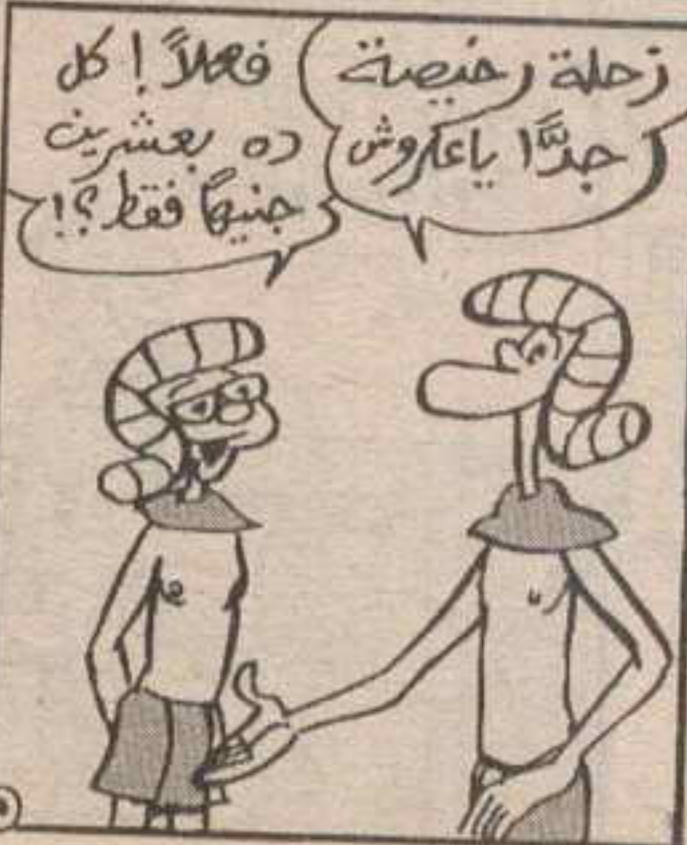 رحلة رخيصة
جدًّا ياعكروش
فعلاً! كل
ده بعشرين
جنيهًا فقط؟!